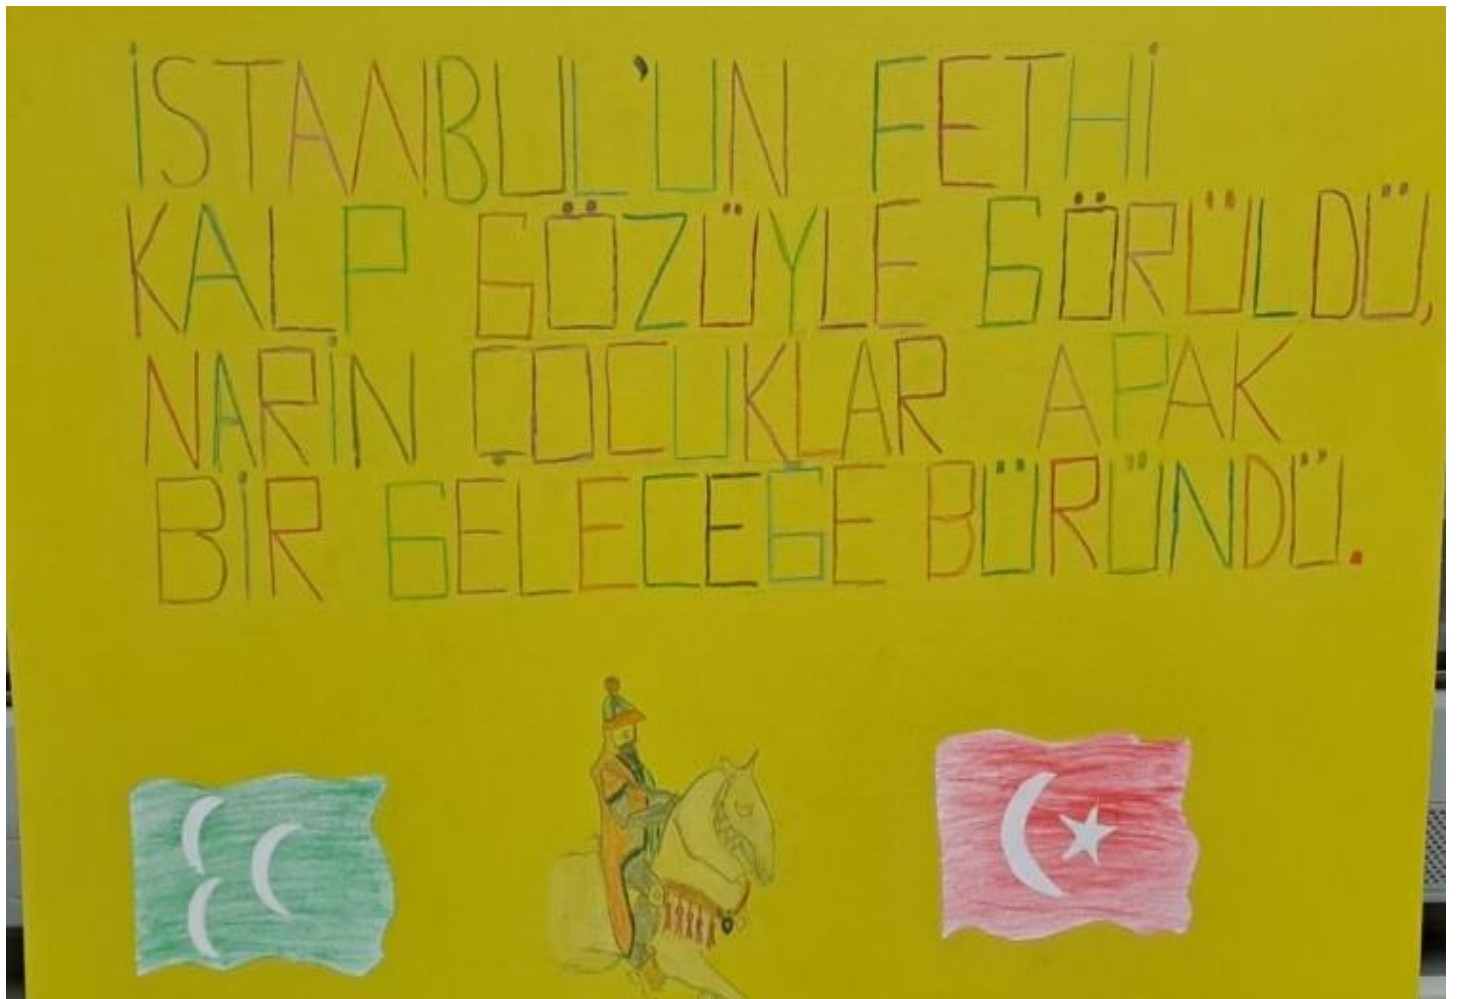 İSTANBUL'UN FETHİ
KALP GÖZÜYLE GÖRÜLDÜ,
NARİN ÇOCUKLAR APAK
BİR GELECEĞE BÜRÜNDÜ.